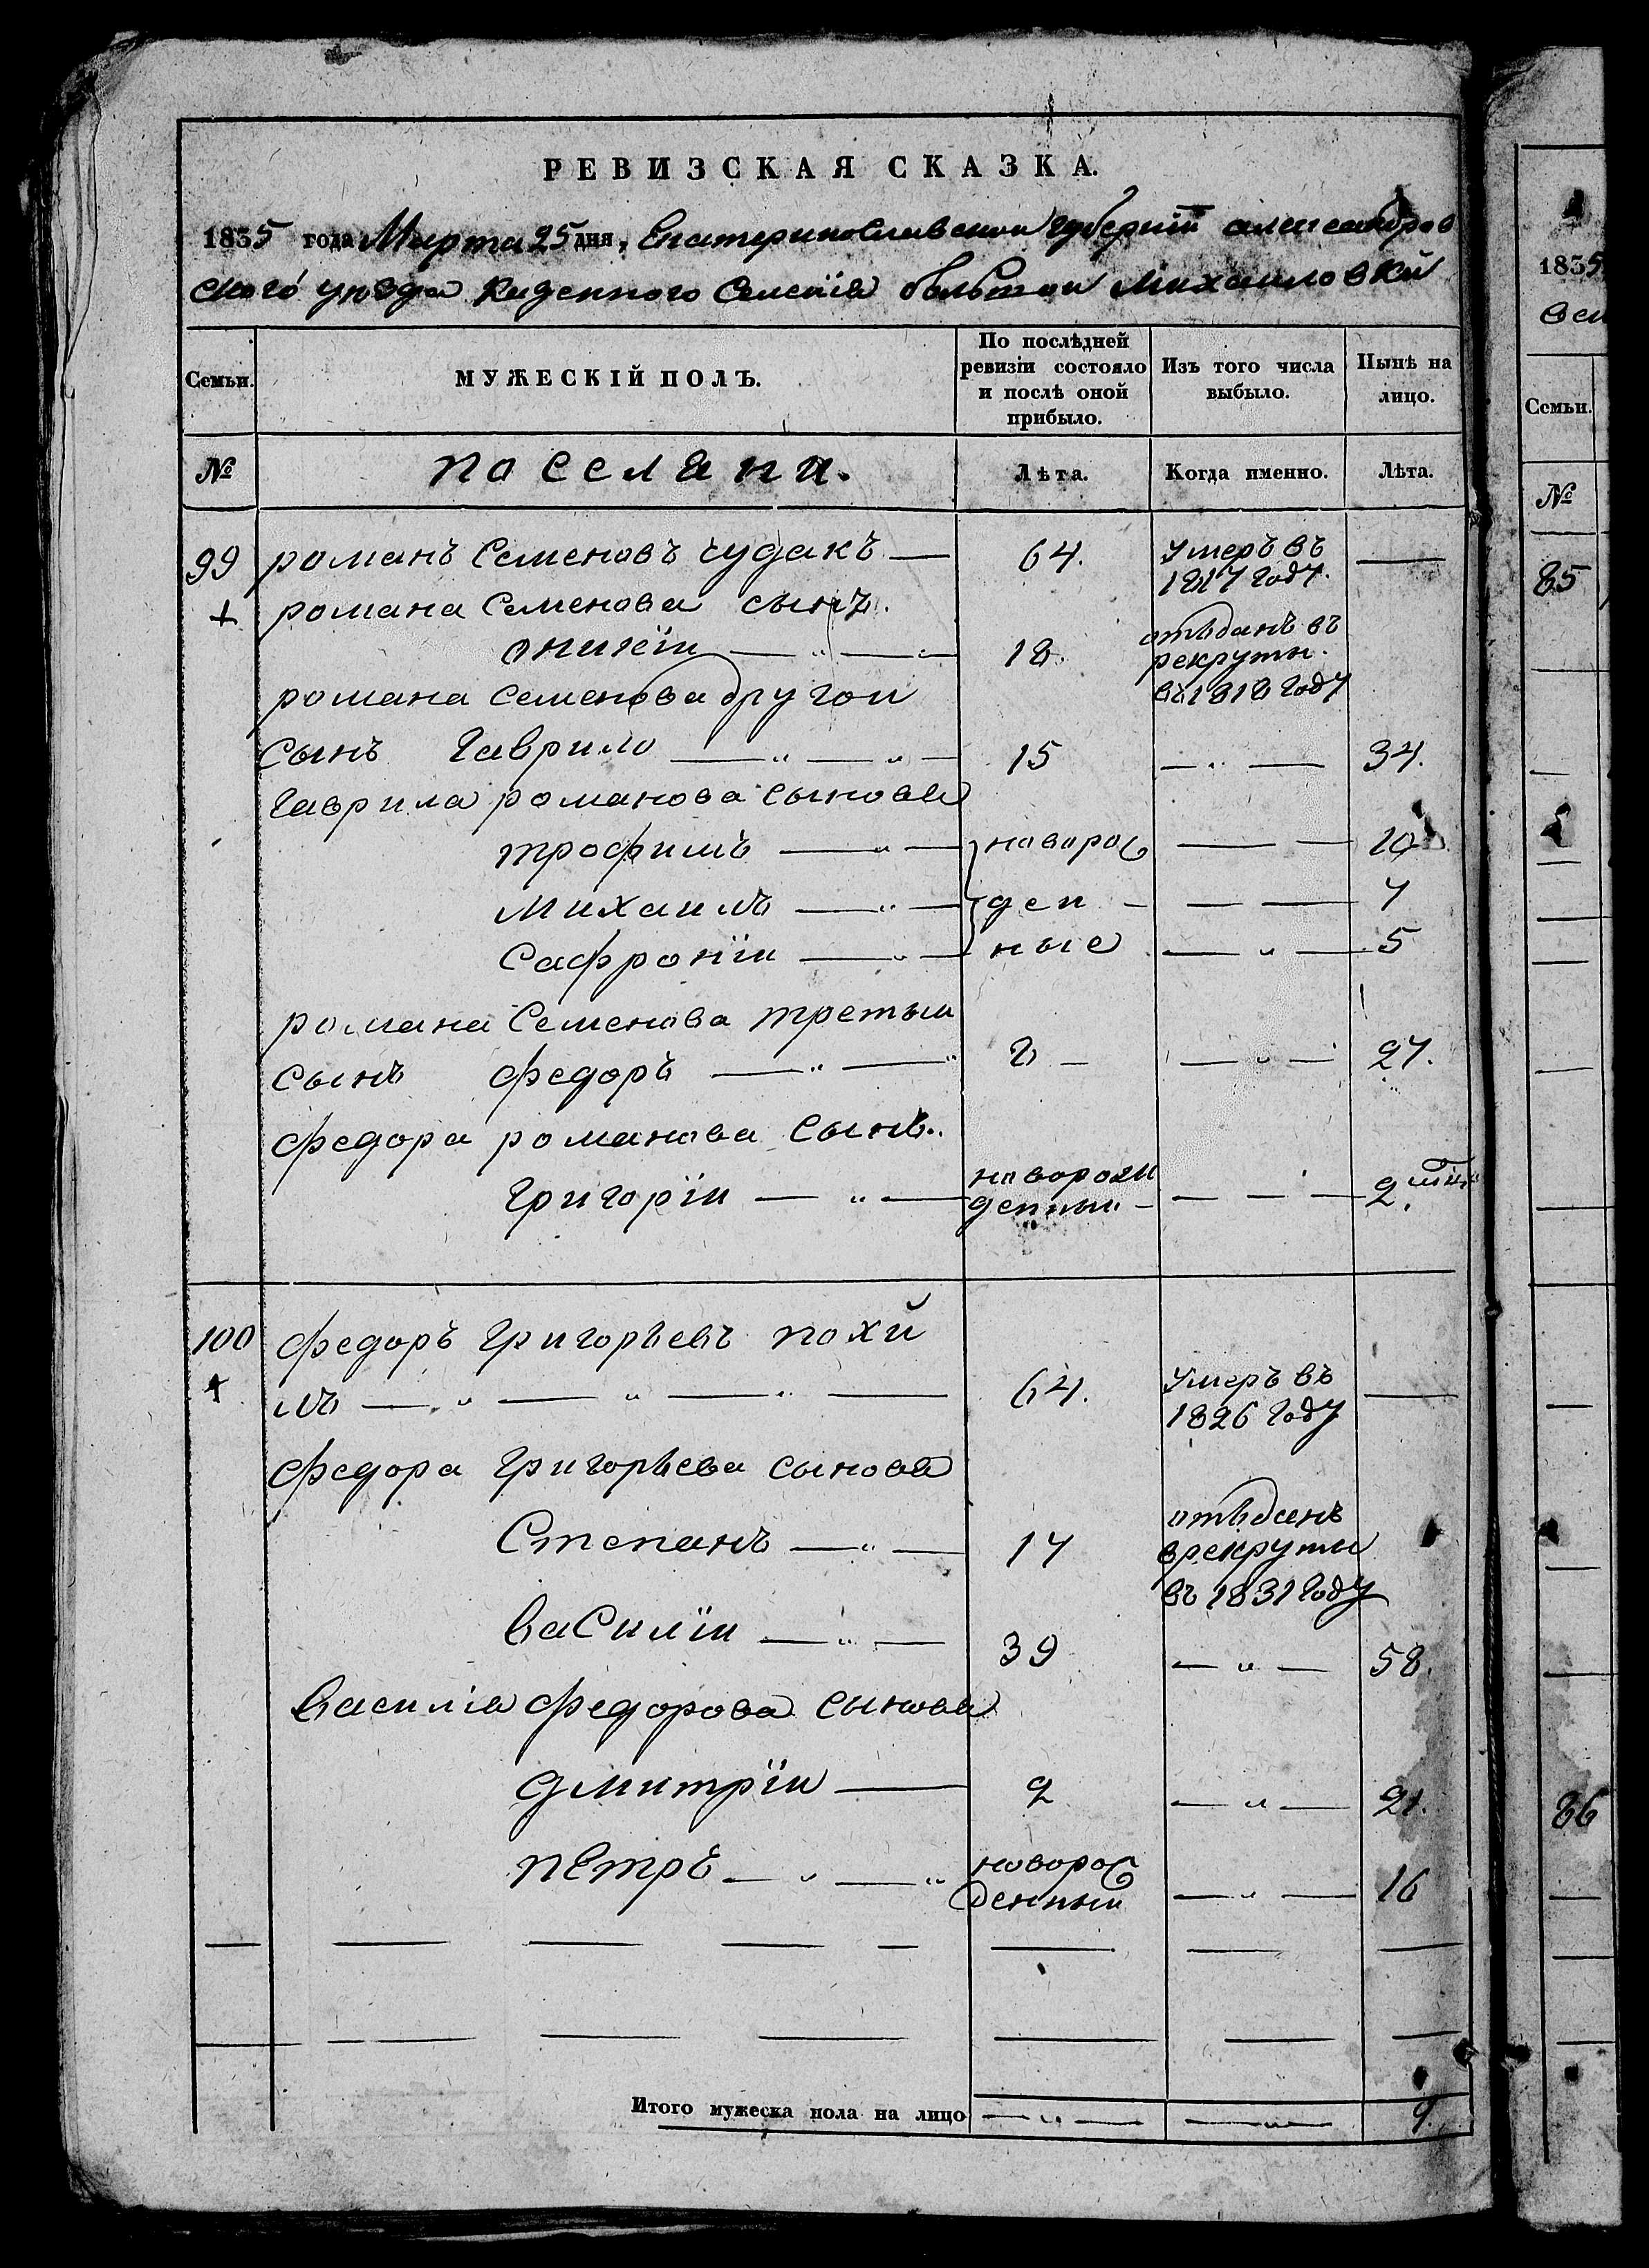 РЕВИЗСКАЯ СКАЗКА.
1835 года Марта 25 дня, Екатеринославской губерніи александров
ского уѣзда казенного Селенія большой Михаиловки
Семьи. МУЖЕСКІЙ ПОЛЪ. По послѣдней ревизіи состояло и послѣ оной прибыло. Изъ того числа выбыло. Нынѣ на лицо.
№ поселяни. Лѣта. Когда именно. Лѣта.
99 романъ Семеновъ Чудакъ — 64. умеръ въ 1817 году. —
романа Семенова сынъ.
онисіи — 18. отъданъ въ рекруты. въ 1818 году
романа Семенова другои
сынъ Гаврило — 15 — 34.
Гаврила романова сынова
трофимъ — новорож — 10
Михаилъ — ден — 7
Сафроніи — ные — 5
романа Семенова третьи
сынъ федоръ — 8 — 27.
федора романова сынъ.
Григоріи — новорожденныи — 2.
100 федоръ Григорьевъ похи
лъ — 64. умеръ въ 1826 году —
федора Григорьева сынова
Степанъ — 17 отъданъ врекруты въ 1831 году
Василіи — 39 — 58.
Василіа федорова сынова
дмитріи — 2 — 21.
петръ — новорожденныи — 16
Итого мужеска пола на лицо — — 9.
1835
Семьи.
№
85
86